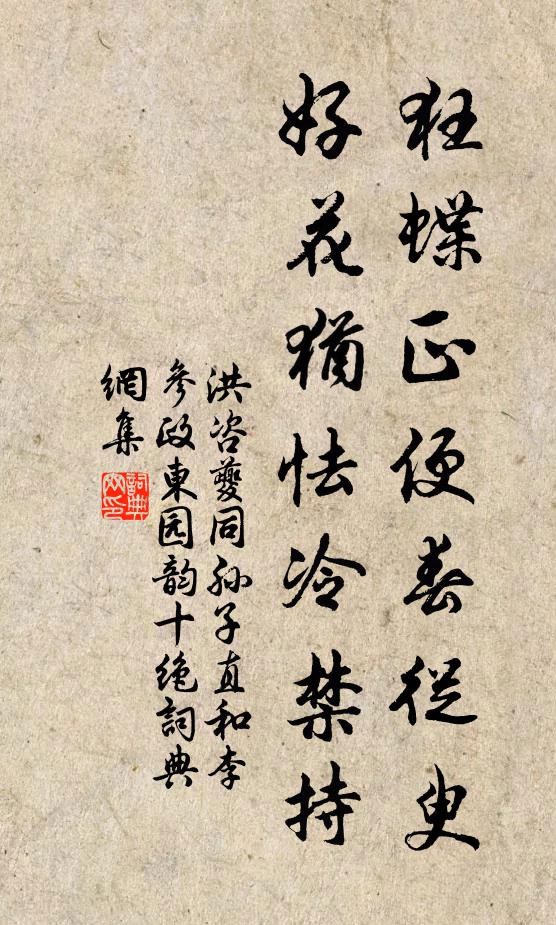 狂蝶正便春從臾
好花猶怯冷禁持
洪咨夔同孙子直和李
參政東园韵十绝詞典
網集
詞典網印